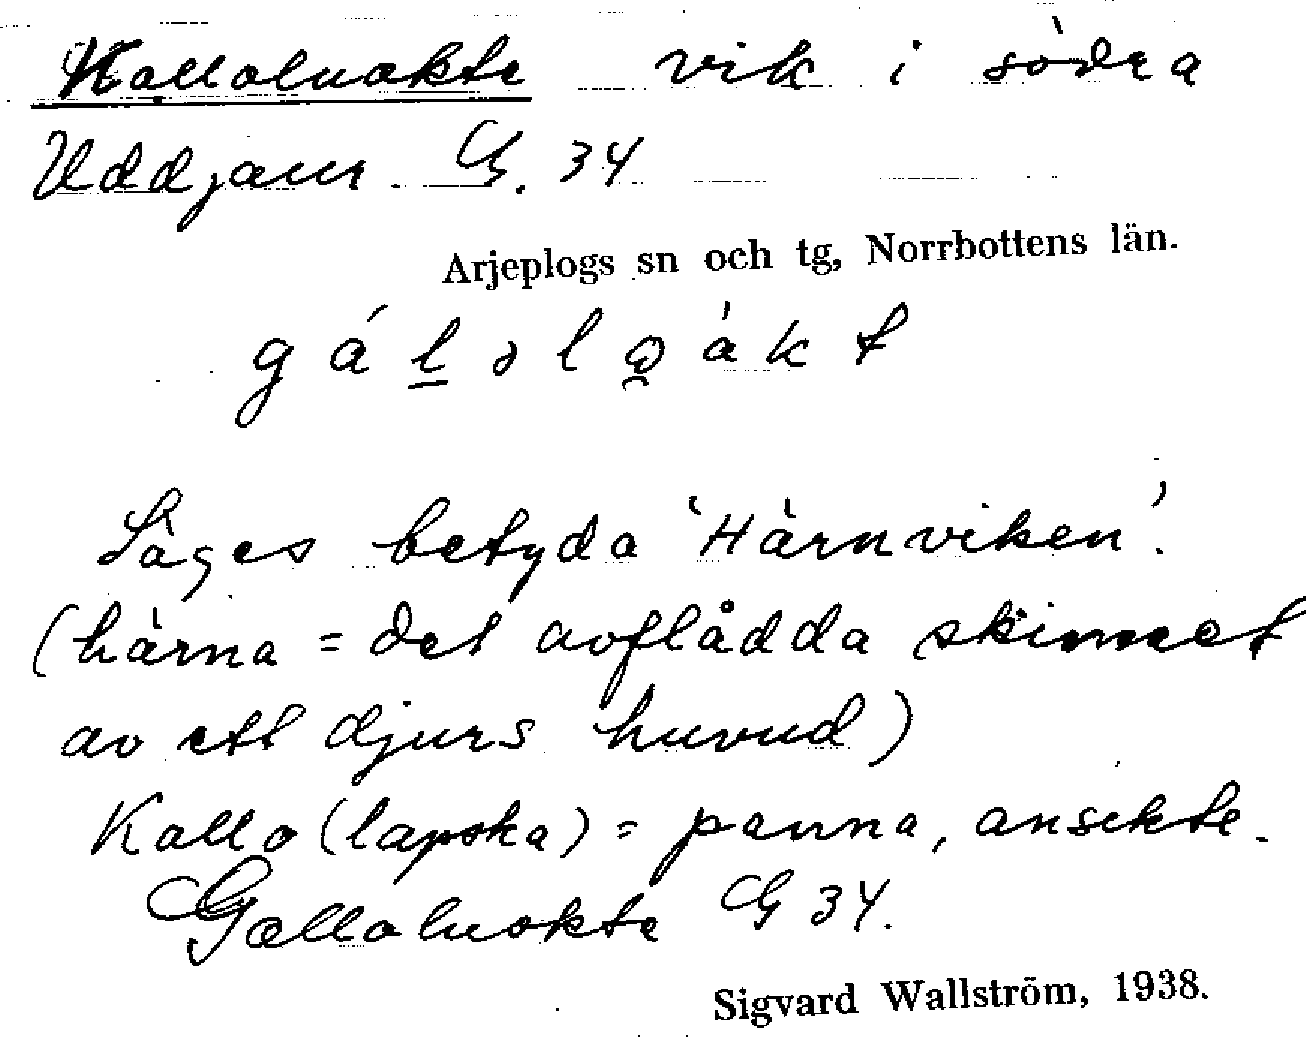 Kalloluokte vik i södra
Uddjaur. G. 34
Arjeplogs sn och tg, Norrbottens län.
Säges betyda 'Härnviken'.
(härna = det avflådda skinnet
av ett djurs huvud)
Kallo (lapska) = panna, ansikte.
Galloluokte G 34.
Sigvard Wallström, 1938.